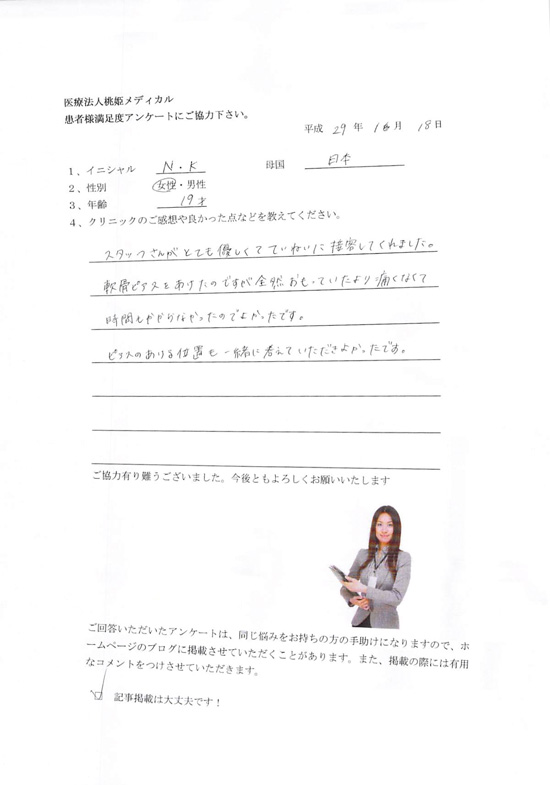 医療法人桃姫メディカル
患者様満足度アンケートにご協力下さい。
平成 29 年 10 月 18 日
1、イニシャル N・K 母国 日本
2、性別 女性・男性
3、年齢 19才
4、クリニックのご感想や良かった点などを教えてください。
スタッフさんがとても優しくてていねいに接客してくれました。
軟骨ピアスをあけたのですが全然おもっていたより痛くなくて
時間もかからなかったのでよかったです。
ピアスのあける位置も一緒に考えていただきよかったです。
ご協力有り難うございました。今後ともよろしくお願いいたします
ご回答いただいたアンケートは、同じ悩みをお持ちの方の手助けになりますので、ホ
ームページのブログに掲載させていただくことがあります。また、掲載の際には有用
なコメントをつけさせていただきます。
記事掲載は大丈夫です！